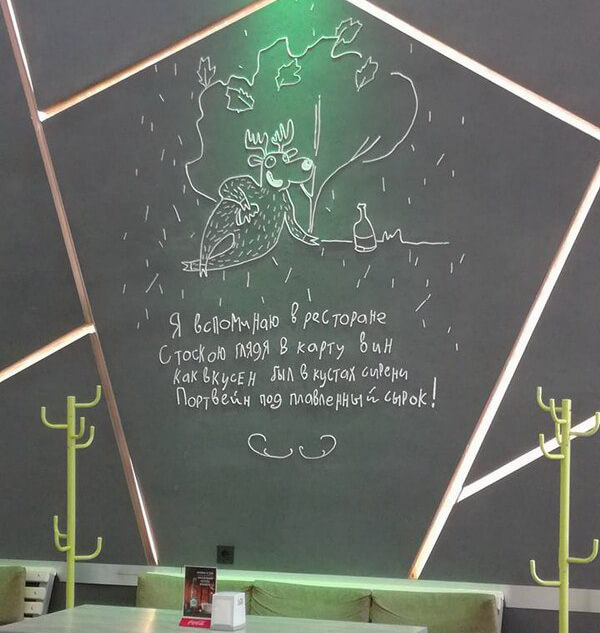 Я вспоминаю в ресторане
С тоскою глядя в карту вин
Как вкусен был в кустах сирени
Портвейн под плавленный сырок!